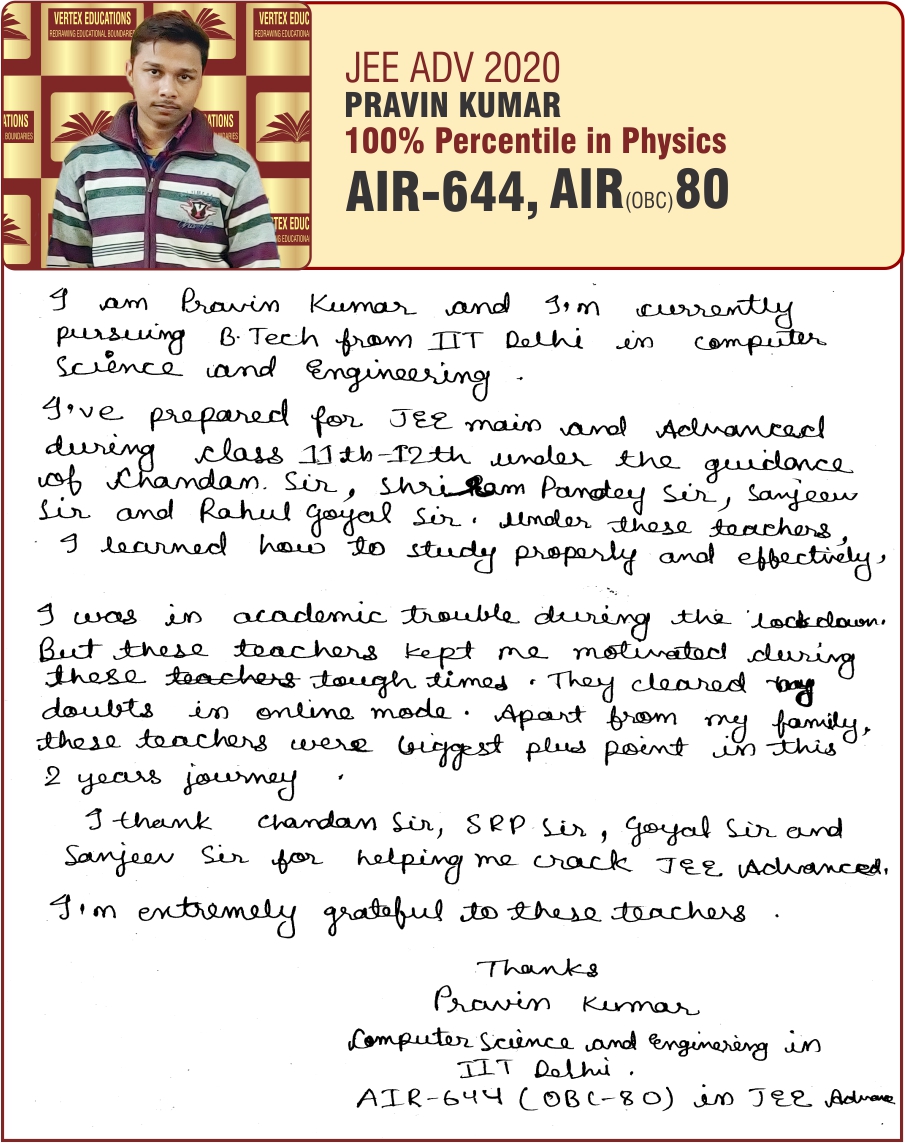 VERTEX EDUCATIONS
REDRAWING EDUCATIONAL BOUNDARIES
VERTEX EDUC
REDRAWING EDUCATIONA
ATIONS
BOUNDARIES
ATIONS
ARIES
TEX EDUC
NG EDUCATIONA
JEE ADV 2020
PRAVIN KUMAR
100% Percentile in Physics
AIR-644, AIR(OBC)80
I am Pravin Kumar and I'm currently
pursuing B.Tech from IIT Delhi in computer
Science and Engineering .
I've prepared for JEE main and Advanced
during class 11th-12th under the guidance
of Chandan. Sir, Shri Ram Pandey Sir, Sanjeev
Sir and Rahul Goyal Sir. Under these teachers,
I learned how to study properly and effectively.
I was in academic trouble during the lockdown.
But these teachers kept me motivated during
these teachers tough times. They cleared my
doubts in online mode. Apart from my family,
these teachers were biggest plus point in this
2 years journey .
I thank Chandan Sir, SRP Sir, Goyal Sir and
Sanjeev Sir for helping me crack JEE Advanced.
I'm extremely grateful to these teachers .
Thanks
Pravin Kumar
Computer Science and Enginering in
IIT Delhi.
AIR-644 (OBC-80) in JEE Advance